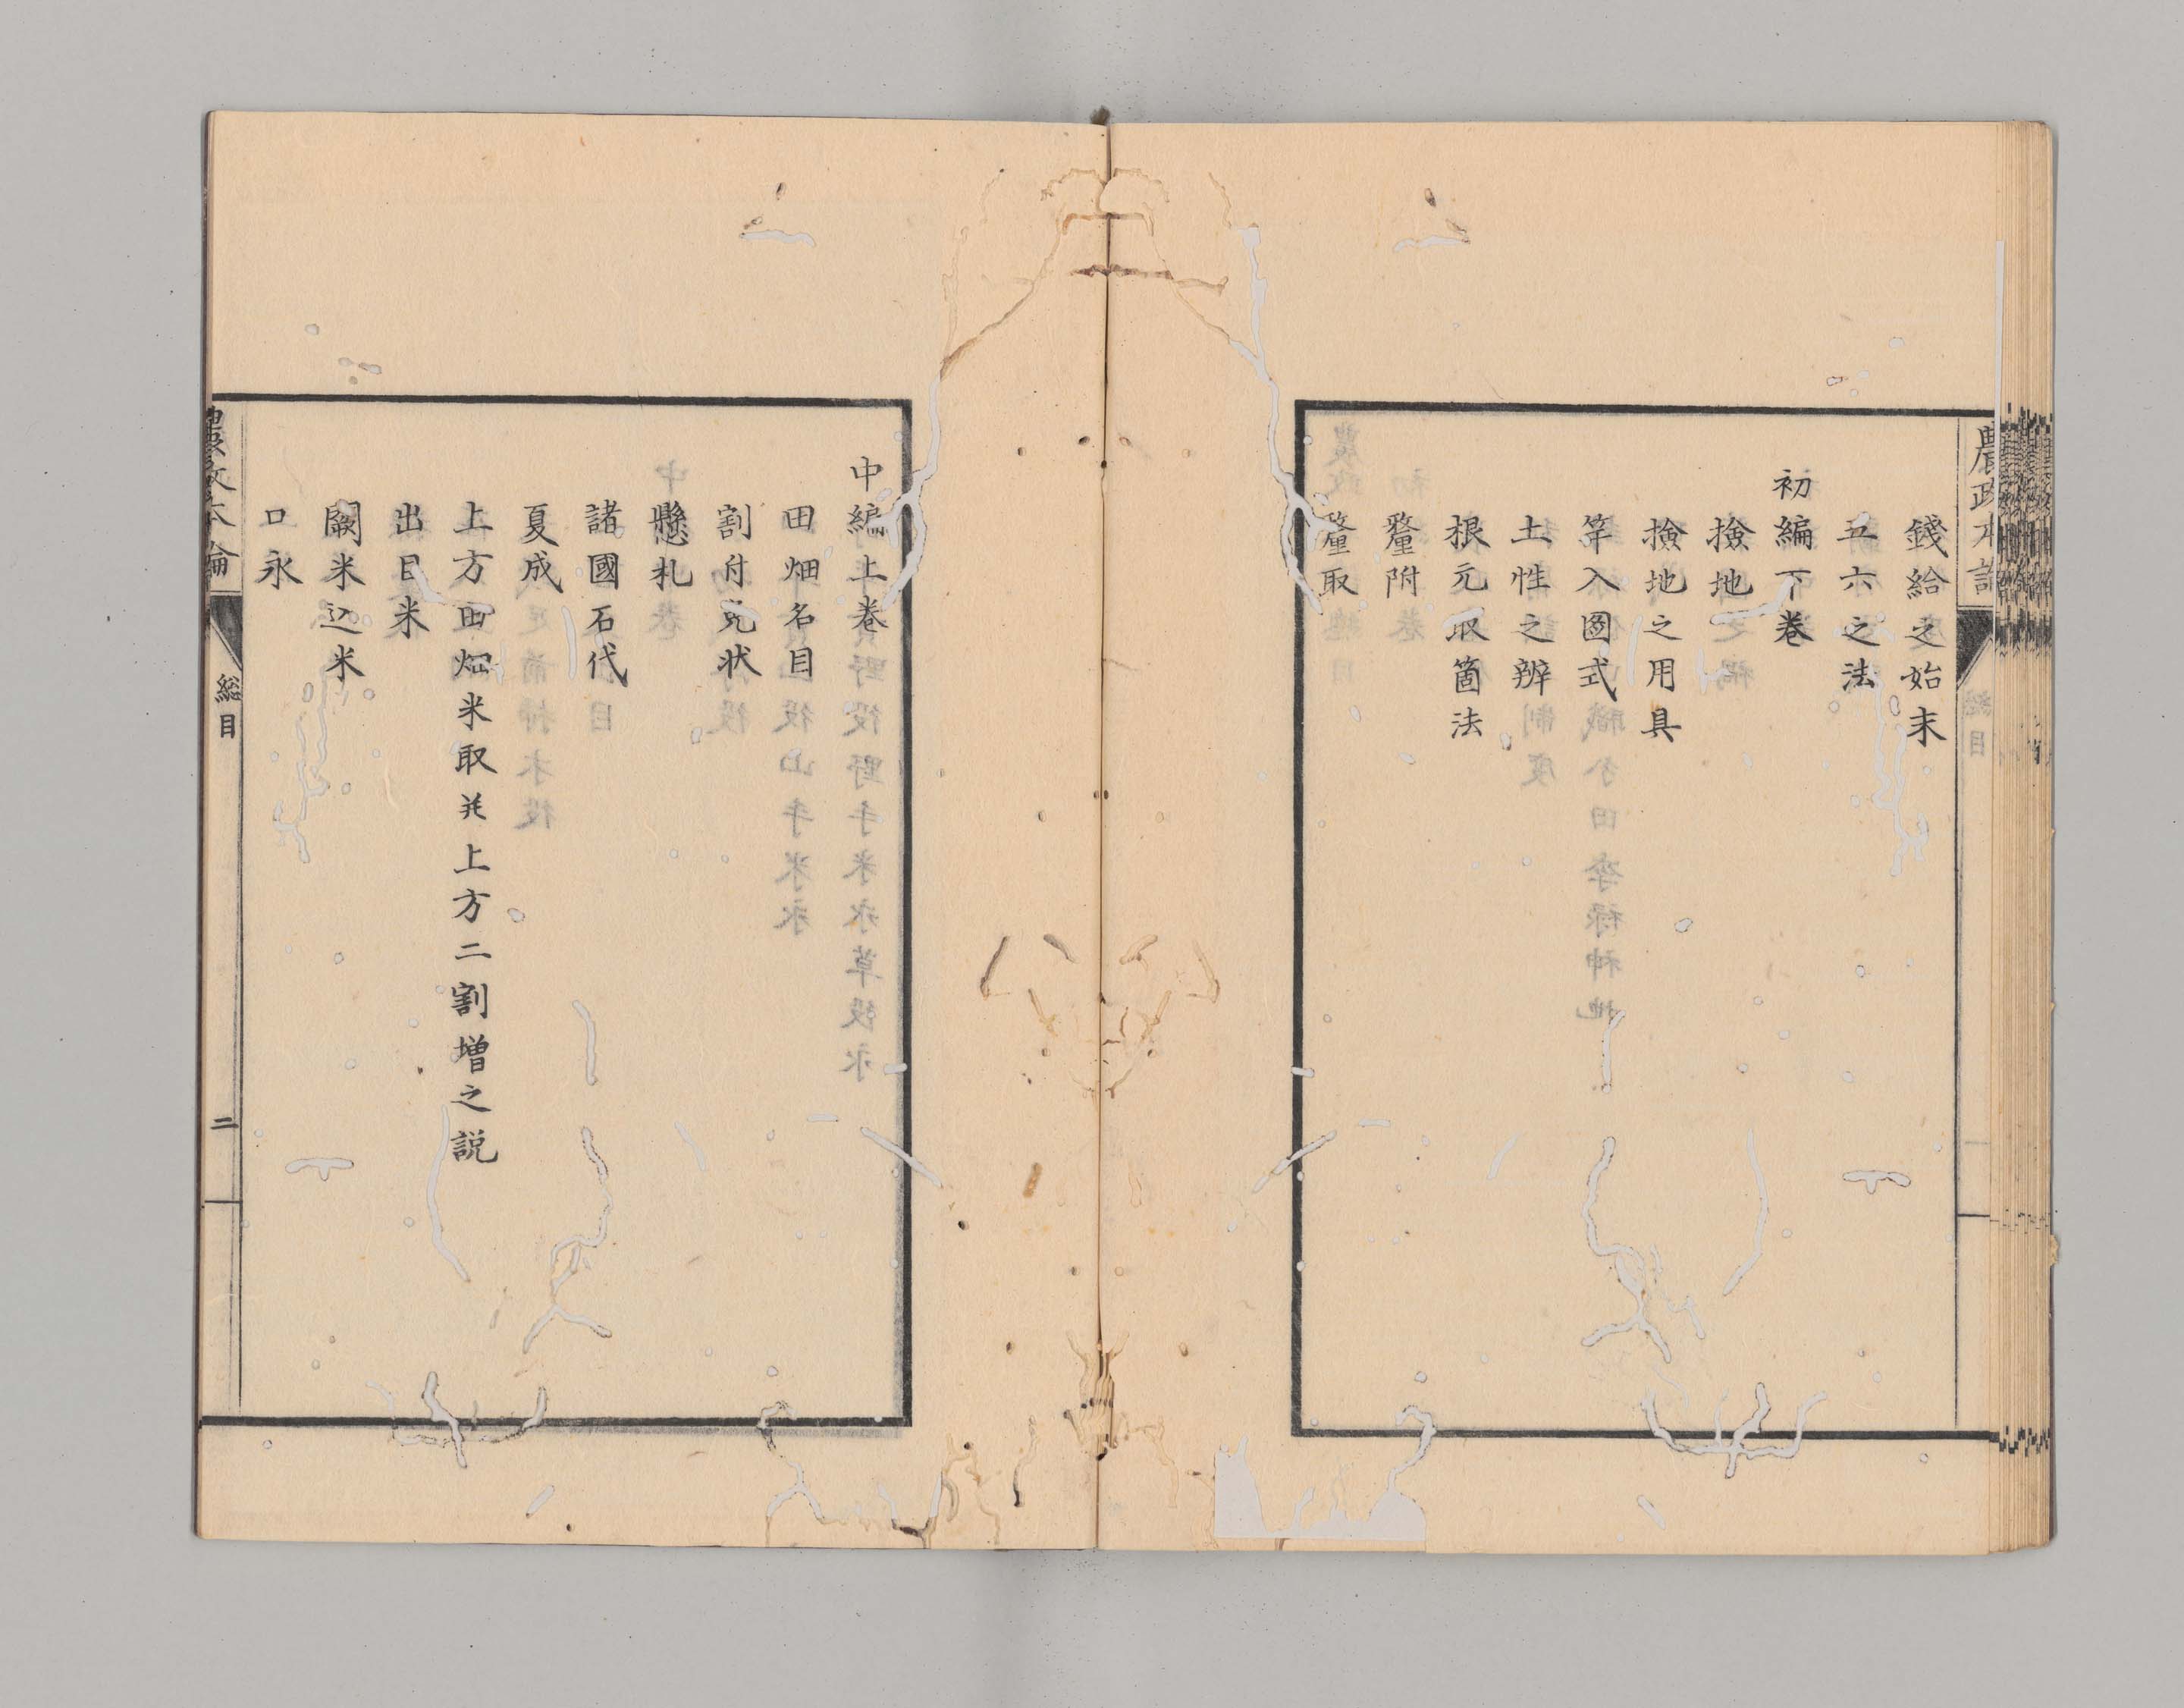 農政本論
銭給之始末
五六之法
初編下巻
撿地
撿地之用具
竿入圖式
土性之辨
根元取箇法
釐附
釐取
中編上巻
田畑名目
割付免状
懸札
諸國石代
夏成
上方田畑米取并上方二割増之説
出目米
闕米込米
口永
農政本論
総目
二